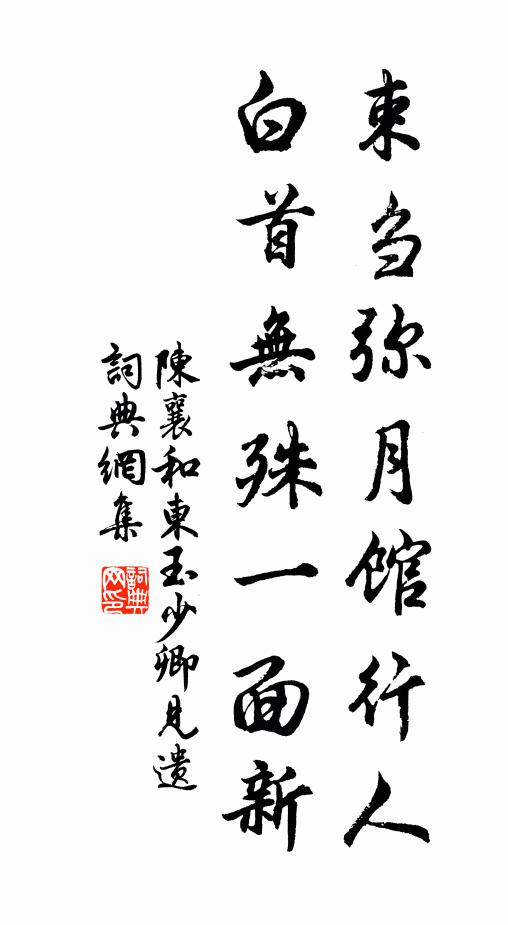 束刍弥月館行人
白首無殊一面新
陳襄和東玉少卿見遺
詞典網集
詞典网印